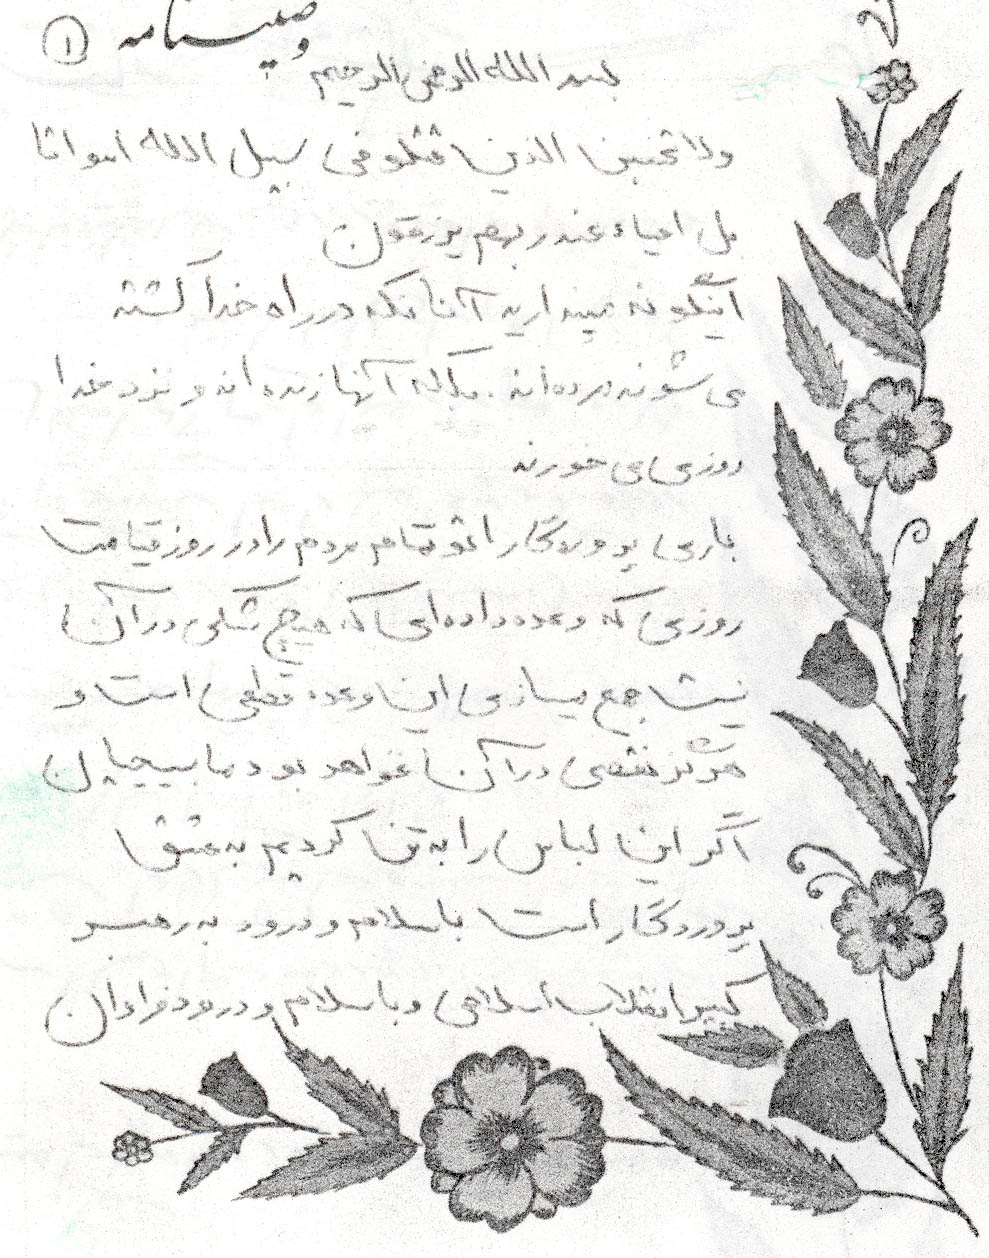 وصیت‌نامه ۱
بسم الله الرحمن الرحیم
ولا تحسبن الذین قتلو فی سبیل الله امواتا
بل احیاء عند ربهم یرزقون
اینگونه مپندارید آنانکه در راه خدا کشته
می شوند مرده‌اند. بلکه آنها زنده‌اند و نزد خدا
روزی می خورند
باری پروردگارا تو تمام مردم را در روز قیامت
روزی که وعده داده‌ای که هیچ شکی در آن
نیست جمع میسازی این وعده قطعی است و
هرگز نقضی در آن نخواهد بود ما بسیجیان
اگر این لباس را به تن کردیم به عشق
پروردگار است با سلام و درود به رهبر
کبیر انقلاب اسلامی و با سلام و درود فراوان